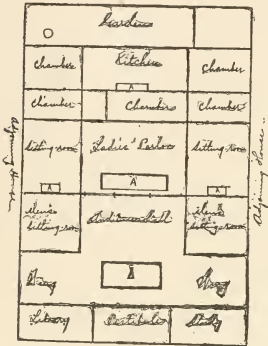 Garden
Chamber Kitchen Chamber
A
Chamber Chambers Chamber
Sitting-room Ladies' Parlor Sitting-room
A A A
Men's Sitting-room Audience Hall Men's Sitting-room
A
Wing Wing
Library Vestibule Study
Adjoining House
Adjoining House